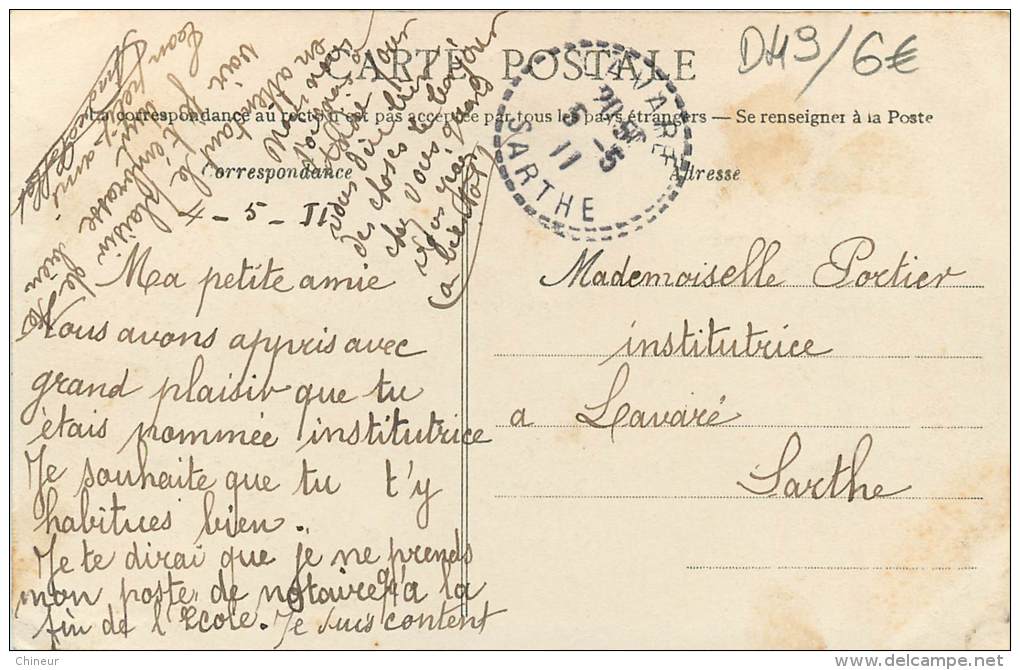 D49/6€
CARTE POSTALE
La correspondance au recto n'est pas acceptée par tous les pays étrangers — Se renseigner à la Poste
Correspondance
Adresse
LAVARÉ
5 - 5
11
SARTHE
4 - 5 - 11
Ma petite amie
Nous avons appris avec
grand plaisir que tu
étais nommée institutrice
Je souhaite que tu t'y
habitues bien.
Je te dirai que je ne prends
mon poste de notaire qu'à la
fin de l'Ecole. Je suis content
en attendant le plaisir de
voir je t'embrasse bien
ton petit ami
des choses
chez vous le bonjour
a bientôt
Mademoiselle Portier
institutrice
a Lavaré
Sarthe
Chineur
delcampe.net